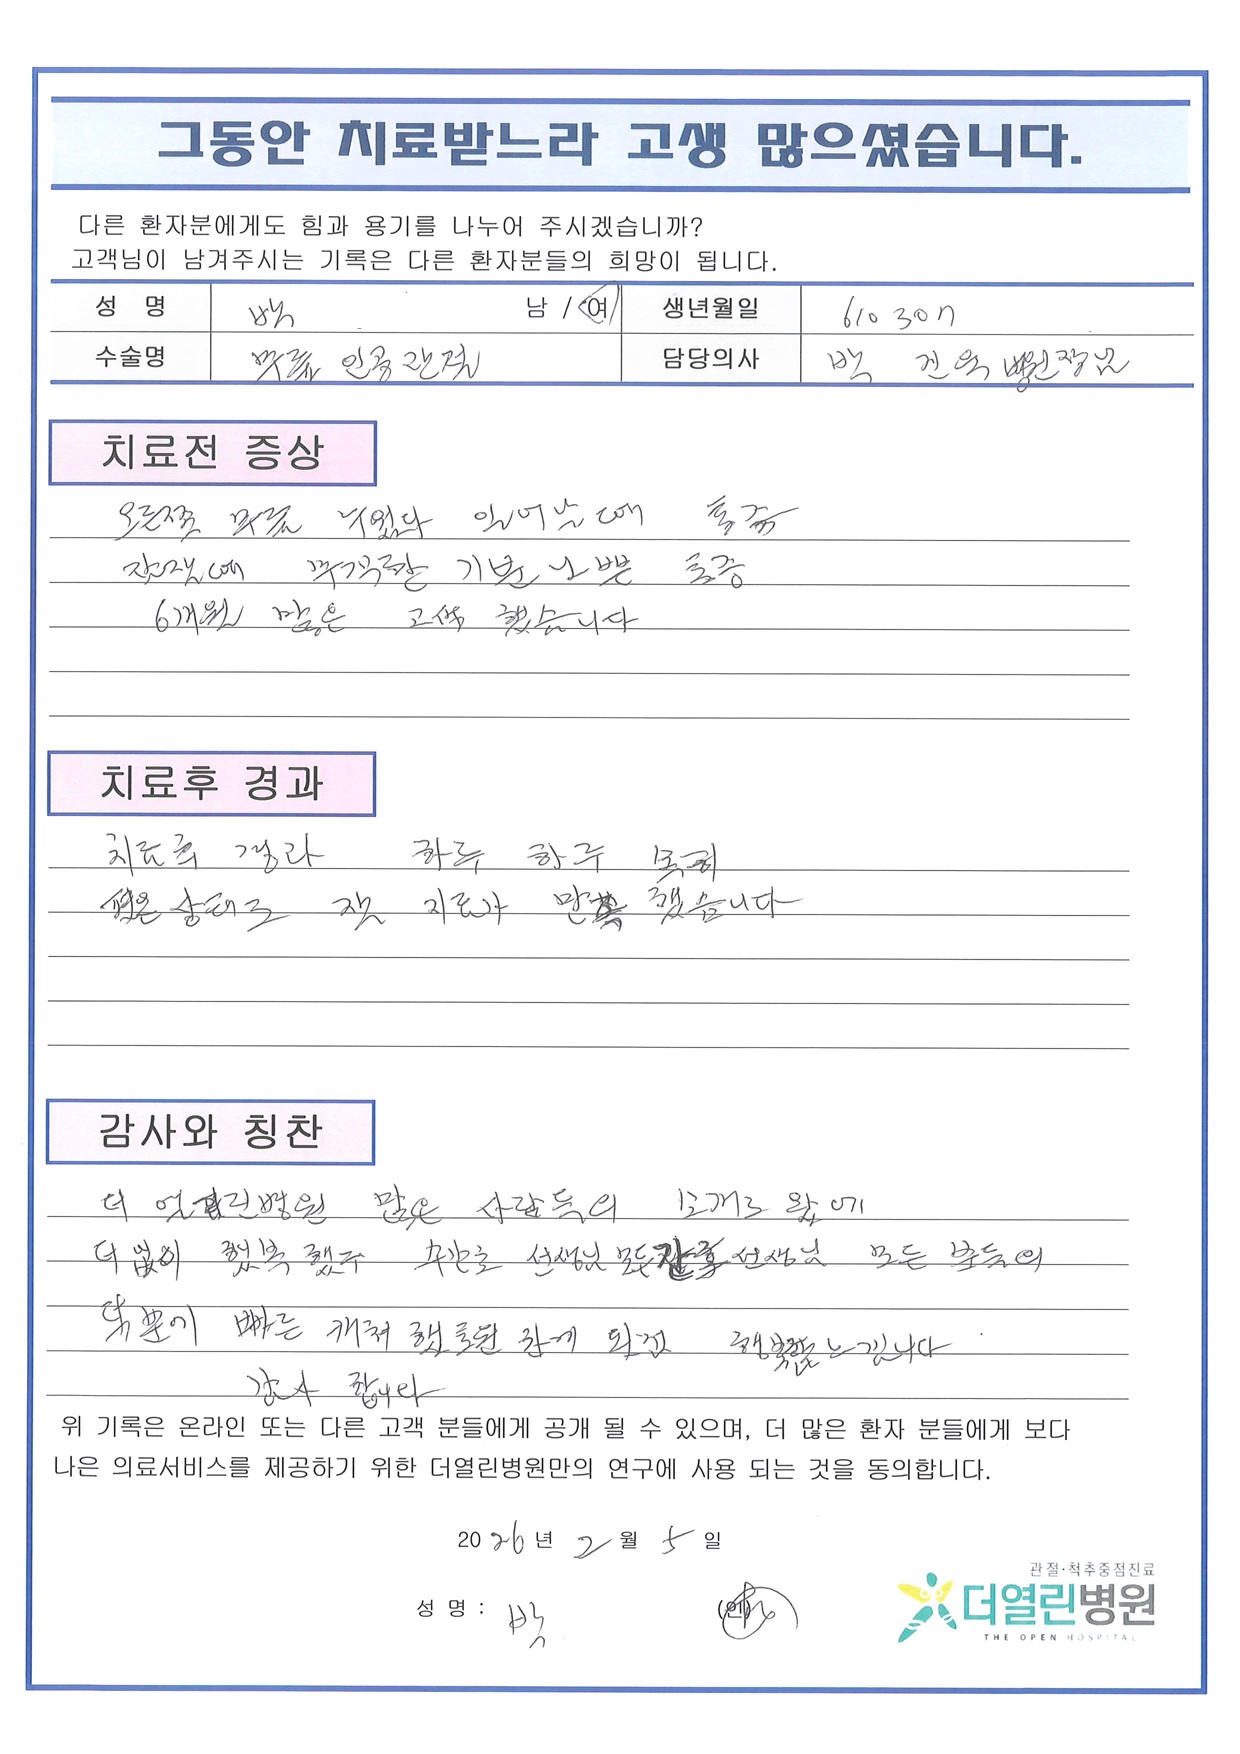 그동안 치료받느라 고생 많으셨습니다.
다른 환자분에게도 힘과 용기를 나누어 주시겠습니까?
고객님이 남겨주시는 기록은 다른 환자분들의 희망이 됩니다.
성 명 박 남 / 여 생년월일 610307
수술명 무릎 인공관절 담당의사 박 진욱 병원장님
치료전 증상
오른쪽 무릎 누웠다 일어날때 통증
잠잘때 묵직한 기분나쁜 통증
6개월 많은 고생 했습니다
치료후 경과
치료후 경과 하루 하루
상태로 치료가 했습니다
감사와 칭찬
더 열린병원 많은 사람들의 소개로 왔
더없이 행복했 수간호 선생님 선생님 모든 분들의
덕분에 빠른 행복함을 느낍니다
감사 합니다
위 기록은 온라인 또는 다른 고객 분들에게 공개 될 수 있으며, 더 많은 환자 분들에게 보다
나은 의료서비스를 제공하기 위한 더열린병원만의 연구에 사용 되는 것을 동의합니다.
2026년 2월 5일
성 명 : 박 (인)
관절·척추중점진료
더열린병원
THE OPEN HOSPITAL